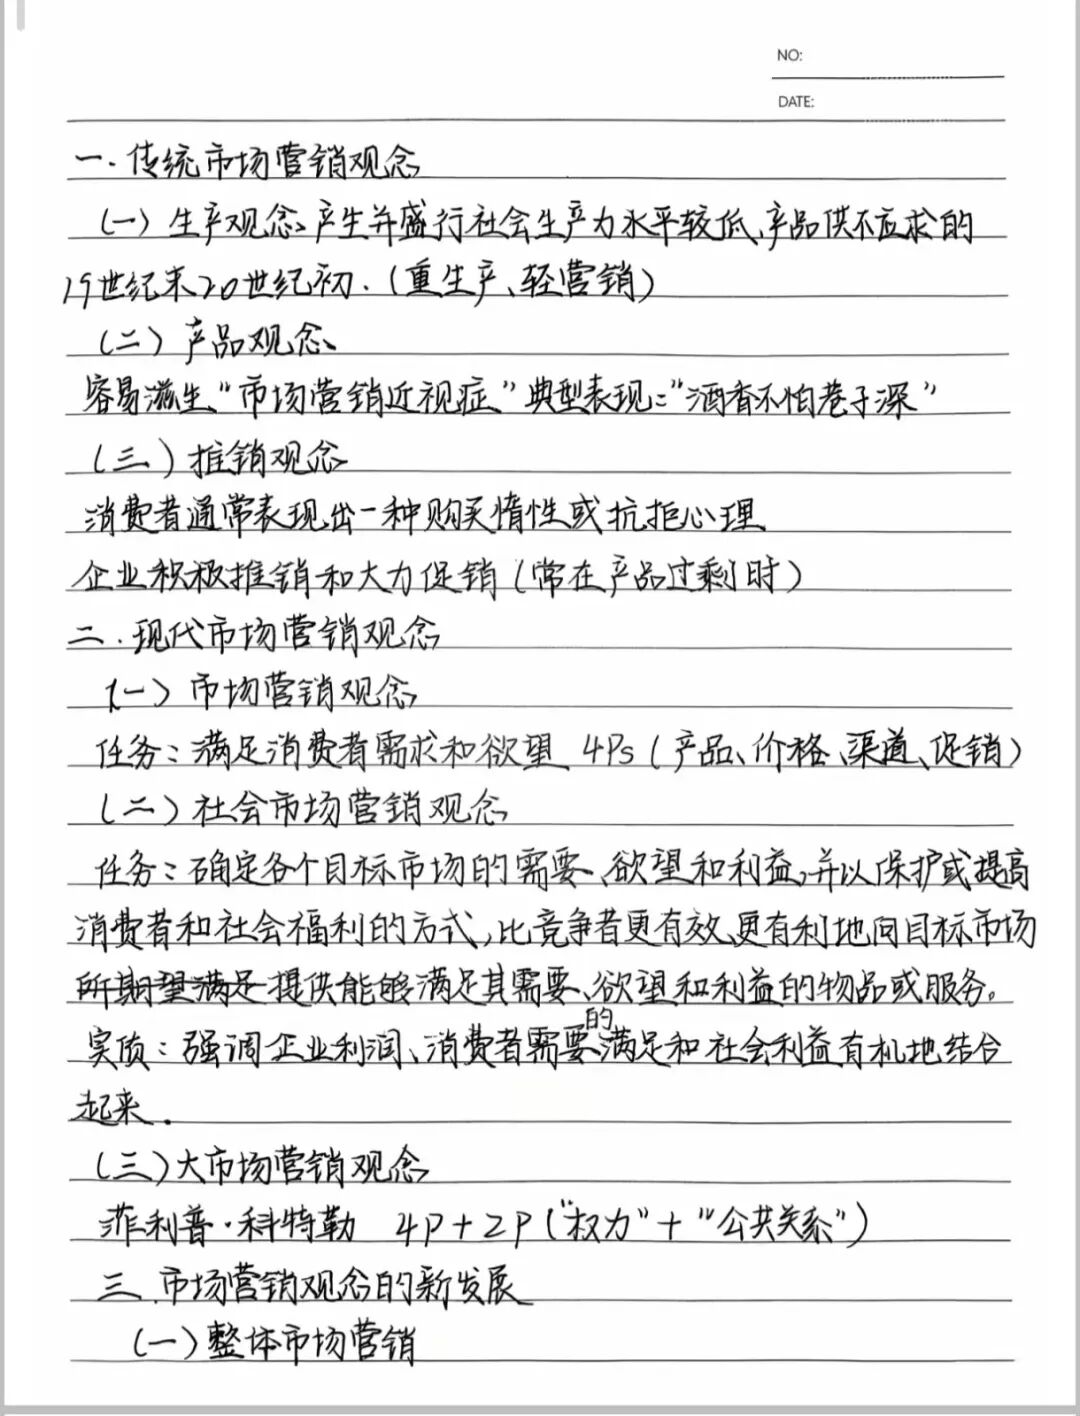 NO:
DATE:
一.传统市场营销观念
(一)生产观念、产生并盛行社会生产力水平较低、产品供不应求的
19世纪末20世纪初.(重生产、轻营销)
(二)产品观念、
容易滋生“市场营销近视症”典型表现:“酒香不怕巷子深”
(三)推销观念
消费者通常表现出一种购买惰性或抗拒心理
企业积极推销和大力促销(常在产品过剩时)
二.现代市场营销观念
(一)市场营销观念
任务:满足消费者需求和欲望 4Ps(产品、价格、渠道、促销)
(二)社会市场营销观念
任务:确定各个目标市场的需要、欲望和利益,并以保护或提高
消费者和社会福利的方式,比竞争者更有效、更有利地向目标市场
所期望满足提供能够满足其需要、欲望和利益的物品或服务。
实质:强调企业利润、消费者需要的满足和社会利益有机地结合
起来.
(三)大市场营销观念
菲利普·科特勒 4P+2P(“权力”+“公共关系”)
三.市场营销观念的新发展
(一)整体市场营销